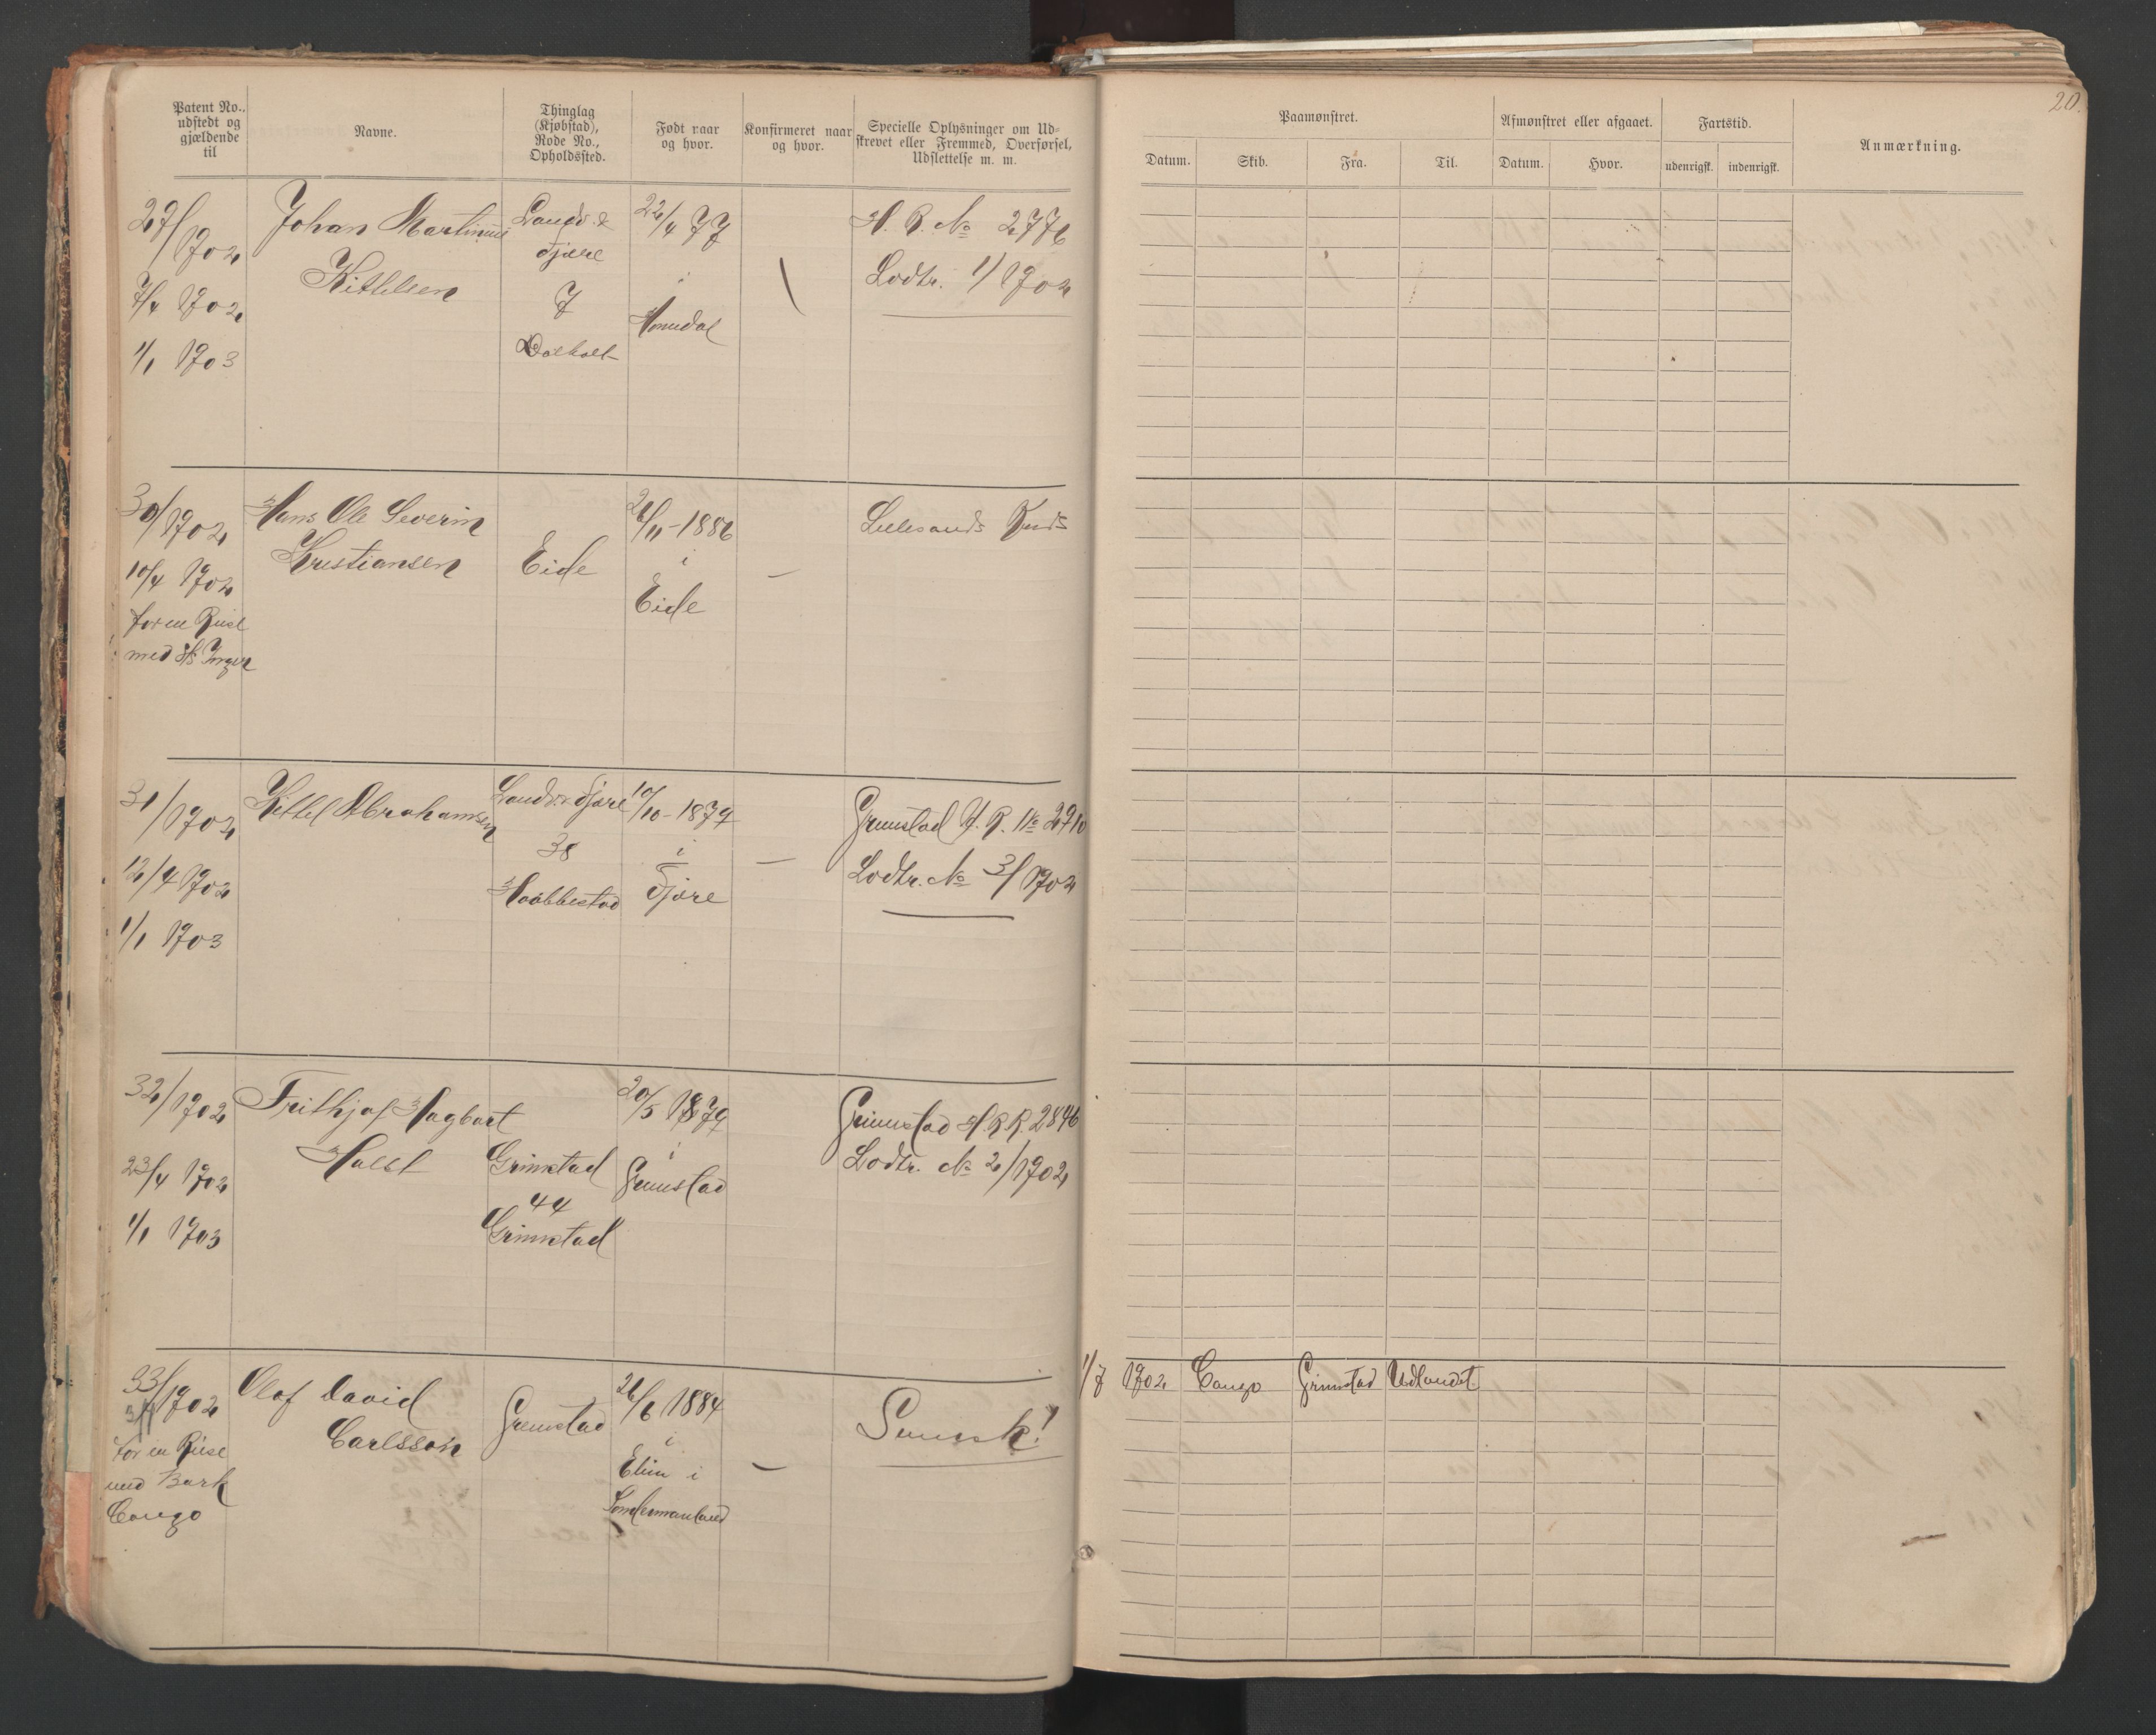 20.
Patent No., udstedt og gjældende til
Navne.
Thinglag (Kjøbstad), Rode No., Opholdssted.
Født naar og hvor.
Konfirmeret naar og hvor.
Specielle Oplysninger om Udskrevet eller Fremmed, Overførsel, Udslettelse m. m.
Paamønstret.
Datum.
Skib.
Fra.
Til.
Afmønstret eller afgaaet.
Datum.
Hvor.
Fartstid.
udenrigsk.
indenrigsk.
Anmærkning.
29/1902
7/4 1902
1/1 1903
Johan Martinius
Kittelsen
Landv. &
Fjære
7
Dalholt
22/4 77
i
Homdal
H. R. No 2776
Lodtr. 1/1902
30/1902
10/4 1902
for en Reise
med S/S Inger
Hans Ole Severin
Kristiansen
Eide
26/11-1886
i
Eide
Lillesands
31/1902
12/4 1902
1/1 1903
Kittel Abrahamsen
Landv. & Fjære
38
10/10-1879
i
Fjære
Grimstad H. R. No 2910
Lodtr. No 3/1902
32/1902
23/4 1902
1/1 1903
Frithjof Hagbart
Grimstad
44
Grimstad
20/5 1879
i
Grimstad
Grimstad H. R. R. 2846
Lodtr. No 2/1902
33/1902
for en Reise
med Bark
Congo
Olaf David
Carlsson
Grimstad
26/6 1884
i
i
Svensk!
1/7 1902 Congo Grimstad Udlandet